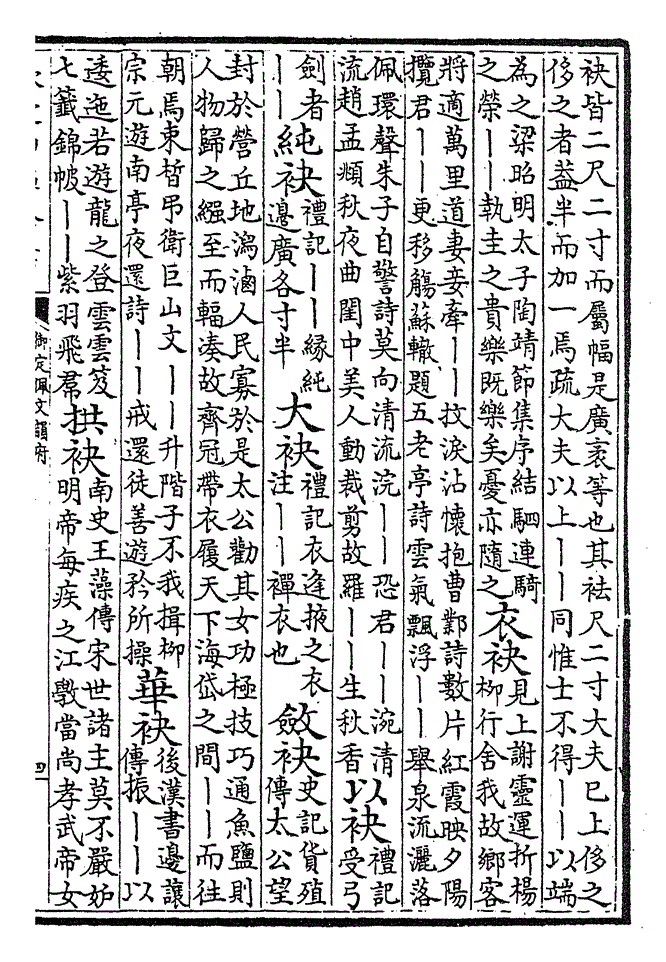 袂皆二尺二寸而屬幅是廣袤等也其袪尺二寸大夫已上侈之
侈之者蓋半而加一焉疏大夫以上——同惟士不得——以端
為之梁昭明太子陶靖節集序結駟連騎
之榮——執圭之貴樂既樂矣憂亦隨之
衣袂
見上謝靈運折楊
柳行舍我故鄉客
將適萬里道妻妾牽——抆淚沾懷抱曹鄴詩數片紅霞映夕陽
攬君——更移觴蘇轍題五老亭詩雲氣飄浮——舉泉流灑落
佩環聲朱子自警詩莫向清流浣——恐君——涴清
流趙孟頫秋夜曲閨中美人動裁剪故羅——生秋香
以袂
禮記
受弓
劍者
——
純袂
禮記——緣純
邊廣各寸半
大袂
禮記衣逢掖之衣
注——襌衣也
斂袂
史記貨殖
傳太公望
封於營丘地潟滷人民寡於是太公勸其女功極技巧通魚鹽則
人物歸之繦至而輻湊故齊冠帶衣履天下海岱之間——而往
朝焉束晳弔衛巨山文——升階子不我揖柳
宗元遊南亭夜還詩——戒還徒善遊矜所操
華袂
後漢書邊讓
傳振——以
逶迤若遊龍之登雲雲笈
七籤錦帔——紫羽飛帬
拱袂
南史王藻傳宋世諸主莫不嚴妒
明帝每疾之江斆當尚孝武帝女
御定佩文韻府
四